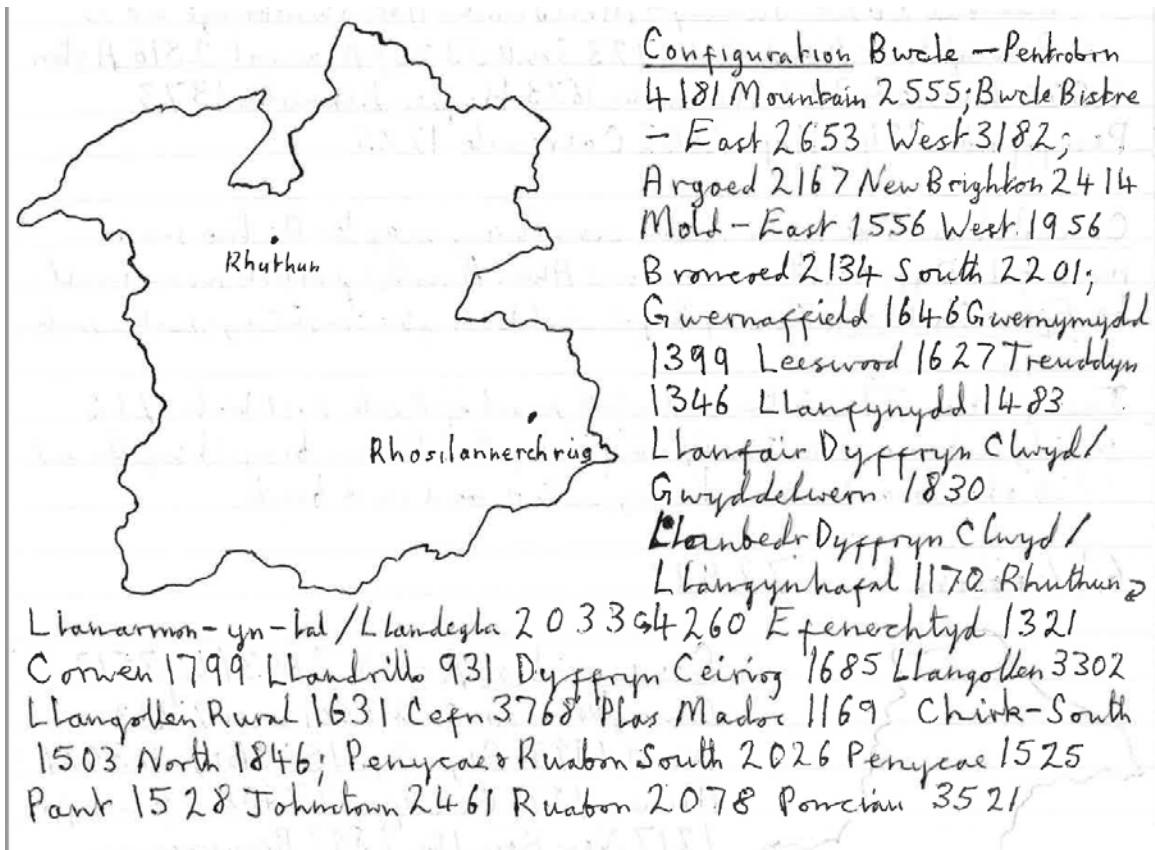 Configuration Bwcle - Pentrobin
4181 Mountain 2555; Bwcle Bistre
- East 2653 West 3182;
Argoed 2167 New Brighton 2414
Mold - East 1556 West 1956
Broncoed 2134 South 2201;
Gwernaffield 1646 Gwernymydd
1399 Leeswood 1627 Treuddyn
1346 Llanfynydd 1483
Llanfair Dyffryn Clwyd/
Gwyddelwern 1830
Llanbedr Dyffryn Clwyd/
Llangynhafal 1170 Rhuthun
Llanarmon-yn-Ial/Llandegla 2033 4260 Efenechtyd 1321
Corwen 1799 Llandrillo 931 Dyffryn Ceiriog 1685 Llangollen 3302
Llangollen Rural 1631 Cefn 3768 Plas Madoc 1169 Chirk-South
1503 North 1846; Penycae & Ruabon South 2026 Penycae 1525
Pant 1528 Johnstown 2461 Ruabon 2078 Ponciau 3521
Rhuthun
Rhosllannerchrug